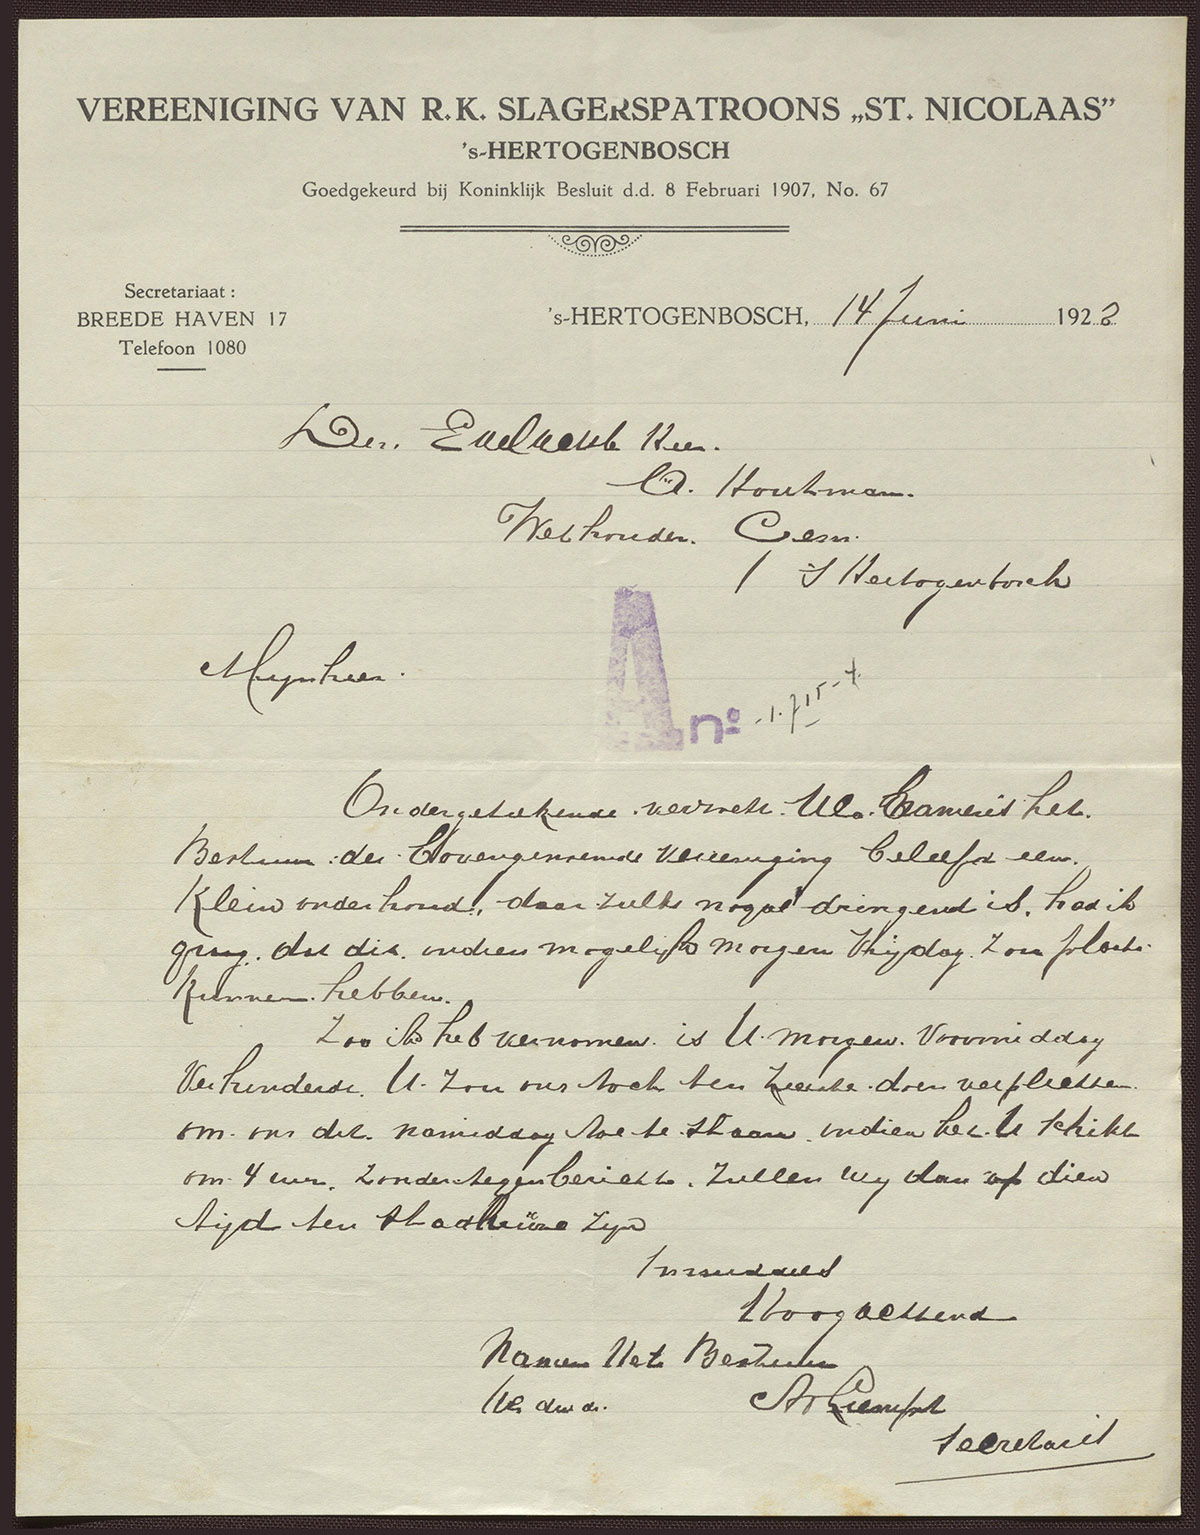 VEREENIGING VAN R.K. SLAGERSPATROONS „ST. NICOLAAS”
's-HERTOGENBOSCH
Goedgekeurd bij Koninklijk Besluit d.d. 8 Februari 1907, No. 67
Secretariaat :
BREEDE HAVEN 17
Telefoon 1080
's-HERTOGENBOSCH, 14 Juni 1928
Den Edelacht Heer.
A. Houtman.
Wethouder. Gem.
's Hertogenbosch
Mijnheer.
A no
Ondergetekende verzoekt. namens het.
Bestuur der bovengenoemde Vereeniging beleefd een.
Klein onderhoud, daar zulks nogal dringend is, had ik
graag. dat dit. indien mogelijk morgen Vrijdag. zou plaats
kunnen hebben.
Zoo ik heb vernomen. is U. morgen. Voormiddag
Verhinderd. U. zou ons toch ten zeerste doen verplichten
om. ons dit. namiddag toe te staan, indien het U schikt
om 4 uur. zonder tegenbericht. zullen wij dan op dien
tijd ten stadhuize zijn
Inmiddels
Hoogachtend
Namen Het Bestuur
secretaris